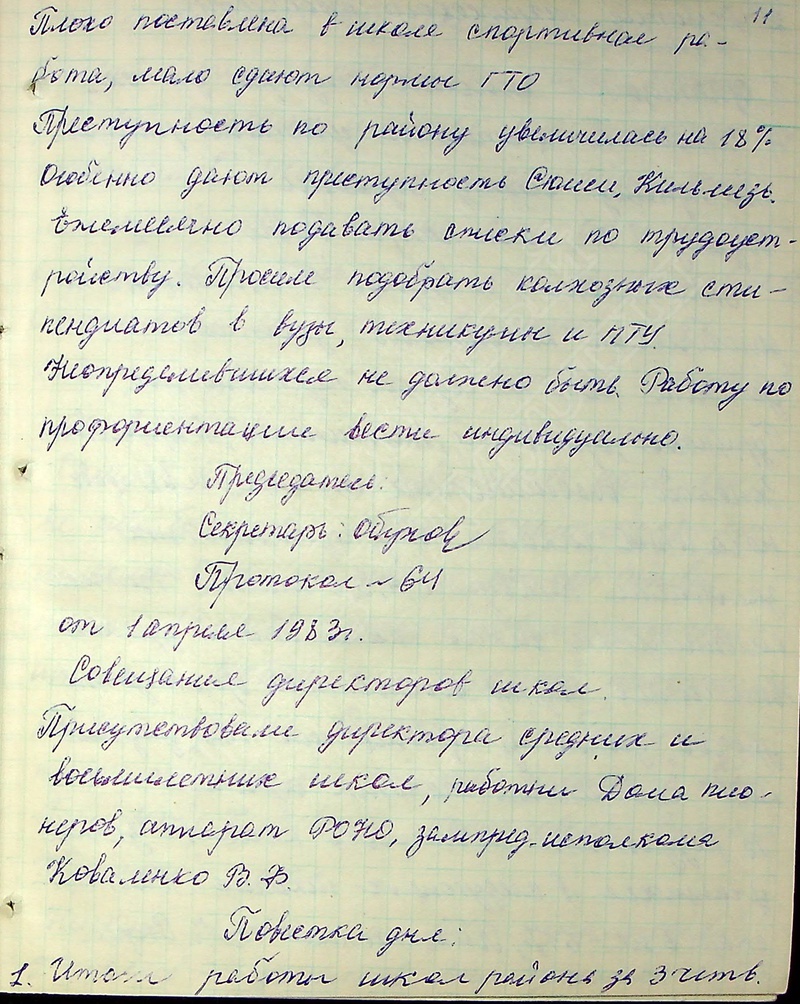 11
Плохо поставлена в школе спортивная ра-
бота, мало сдают нормы ГТО
Преступность по району увеличилась на 18%
Особенно дают преступность Сюмси, Кильмезь.
Ежемесячно подавать списки по трудоуст-
ройству. Просим подобрать колхозных сти-
пендиатов в вузы, техникумы и ПТУ.
Неопределившихся не должно быть. Работу по
профориентации вести индивидуально.
Председатель:
Секретарь: Обухов
Протокол № 64
от 1 апреля 1983г.
Совещания директоров школ.
Присутствовали директора средних и
восьмилетних школ, работни Дома пио-
неров, аппарат РОНО, зампред. исполкома
Коваленко В.Ф.
Повестка дня:
1. Итоги работы школ района за 3 четв.